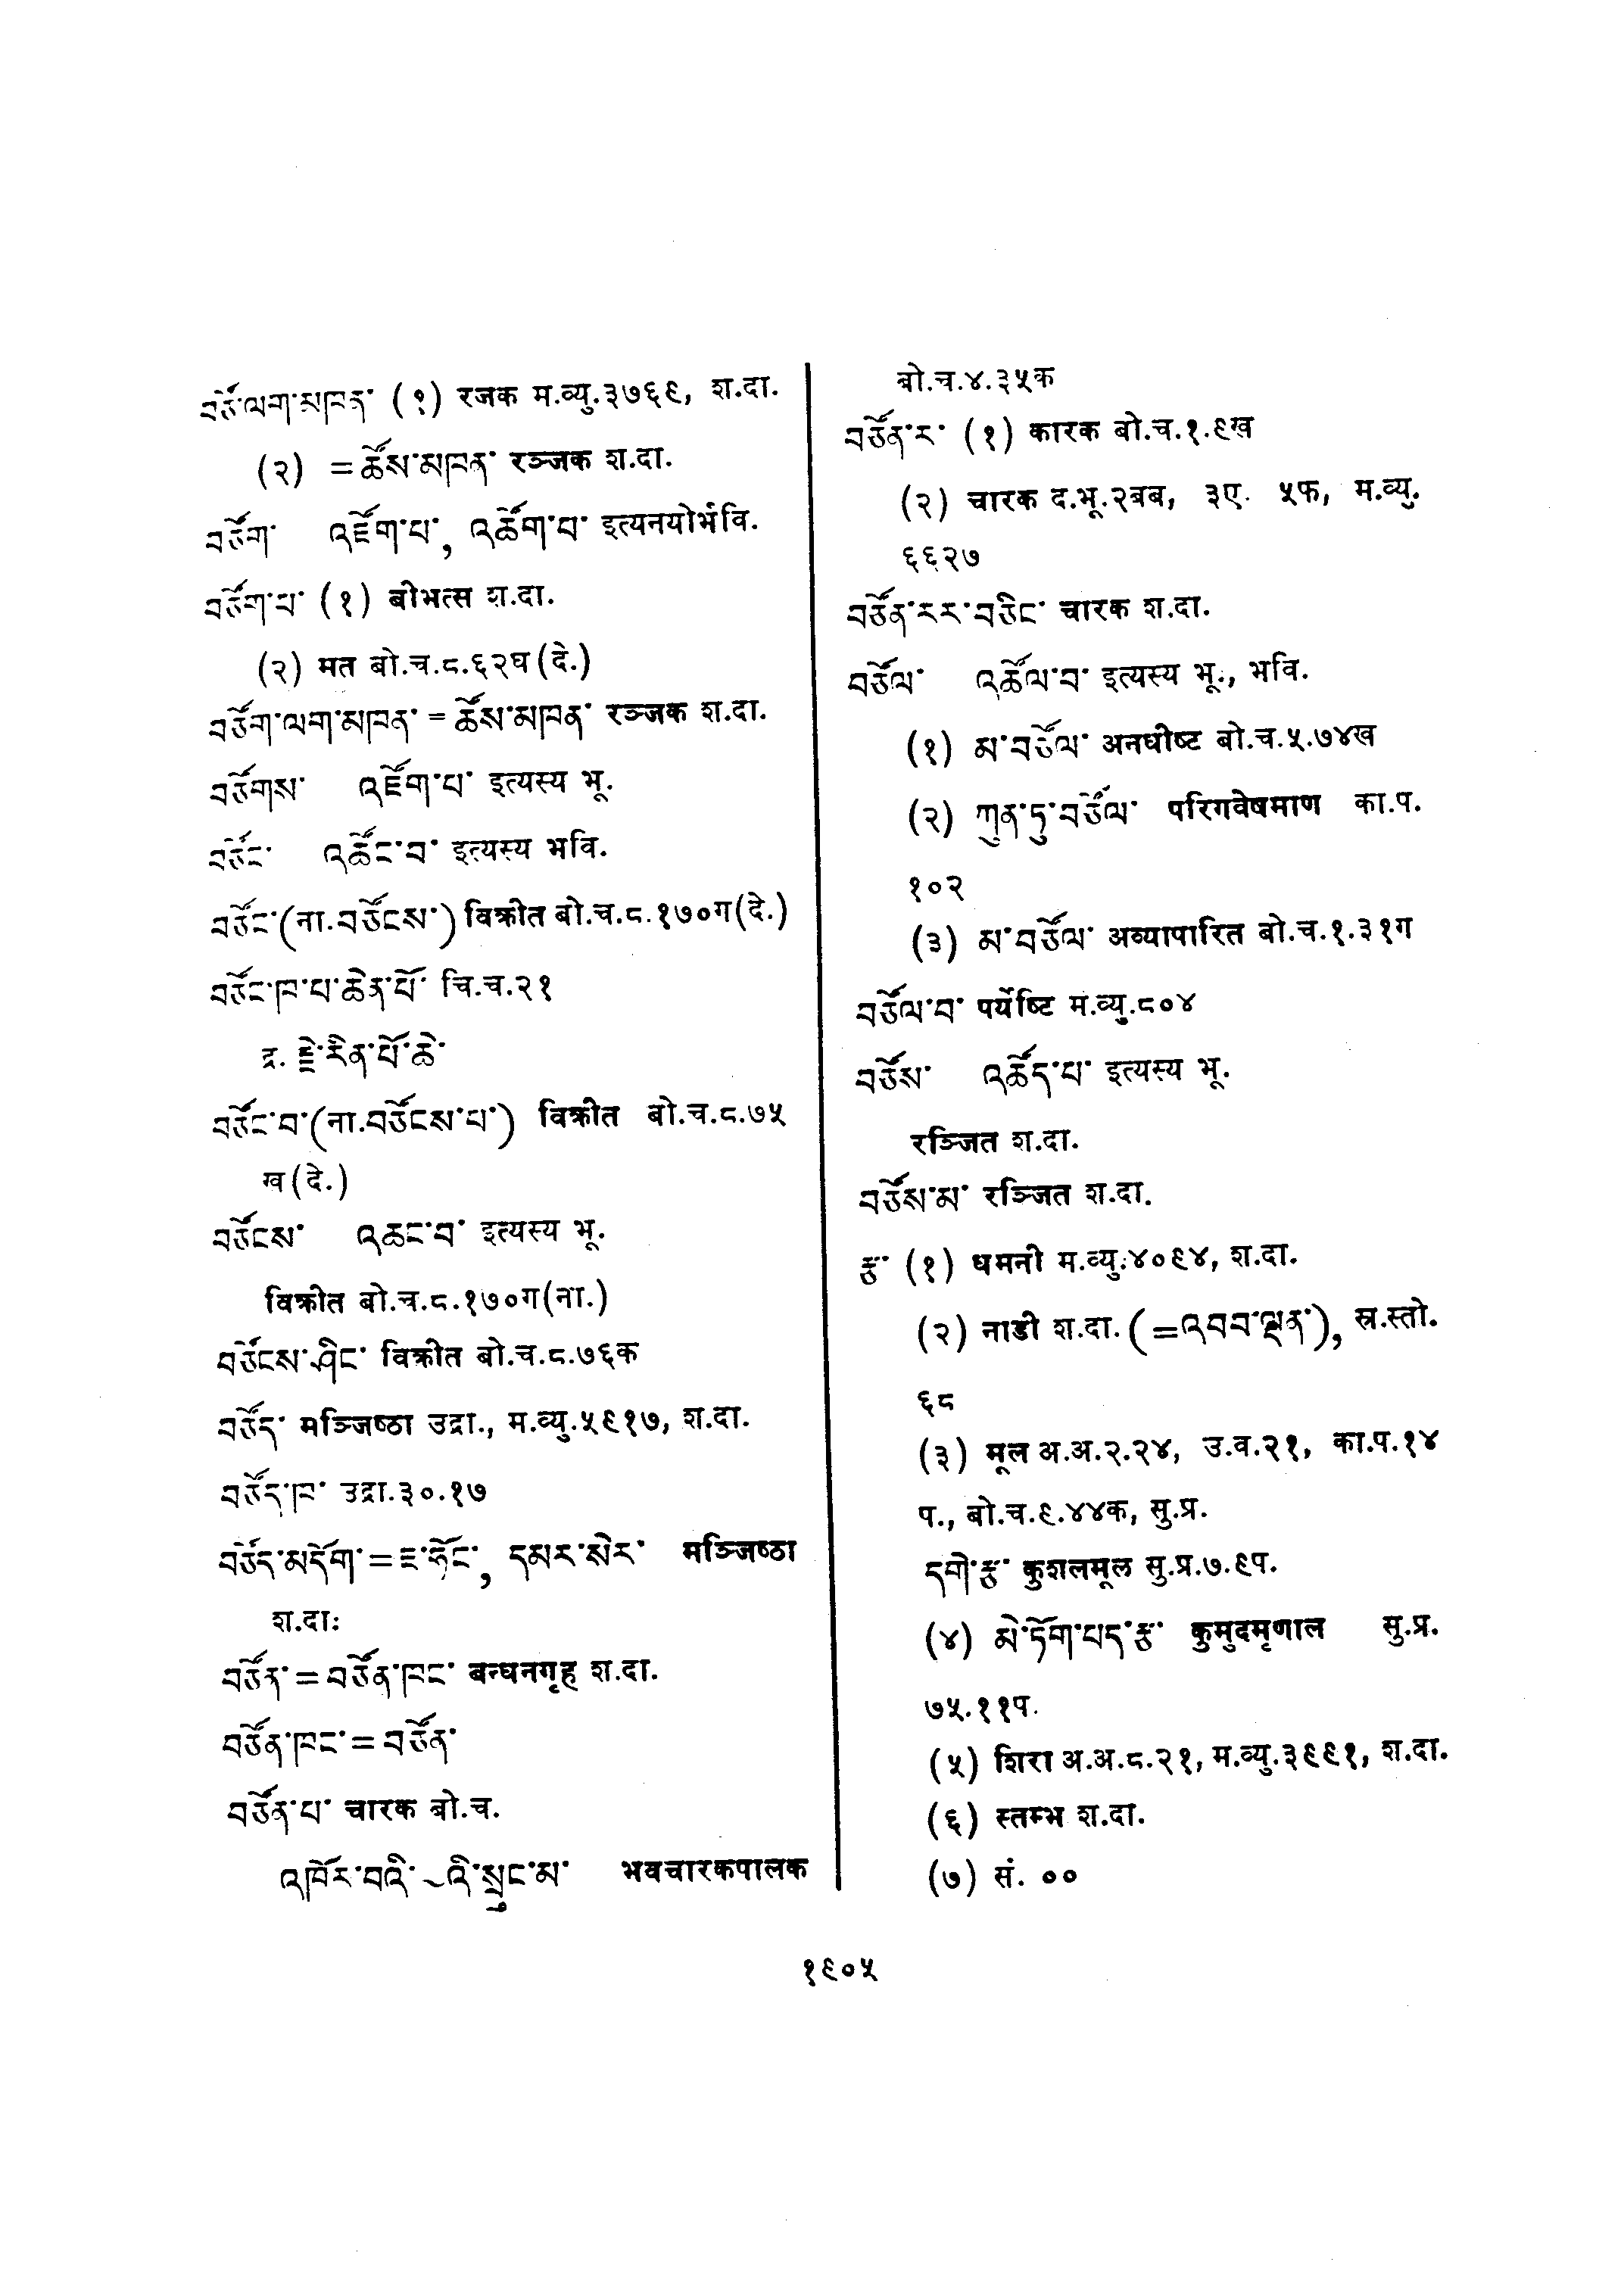 བཙོ་ལག་མཁན་ (१) रजक म.व्यु.३७६९, श.दा.
(२) =ཚོས་མཁན་ रञ्जक श.दा.
བཙོག་ འཛོག་པ་, འཚོག་པ་ इत्यनयोर्भवि.
བཙོག་པ་ (१) बीभत्स श.दा.
(२) मत बो.च.८.६२घ(दे.)
བཙོག་ལག་མཁན་ = ཚོས་མཁན་ रञ्जक श.दा.
བཙོགས་ འཛོག་པ་ इत्यस्य भू.
བཙོང་ འཚོང་བ་ इत्यस्य भवि.
བཙོང་(ना.བཙོངས་) विक्रीत बो.च.८.१७०ग(दे.)
བཙོང་ཁ་པ་ཆེན་པོ་ चि.च.२१
द्र. རྗེ་རིན་པོ་ཆེ་
བཙོང་བ་(ना.བཙོངས་པ་) विक्रीत बो.च.८.७५
ख(दे.)
བཙོངས་ འཚང་བ་ इत्यस्य भू.
विक्रीत बो.च.८.१७०ग(ना.)
བཙོངས་ཤིང་ विक्रीत बो.च.८.७६क
བཙོད་ मञ्जिष्ठा उद्रा., म.व्यु.५९१७, श.दा.
བཙོད་ཁ་ उद्रा.३०.१७
བཙོད་མདོག་=ཛ་ཧོང་, དམར་སེར་ मञ्जिष्ठा
श.दा:
བཙོན་=བཙོན་ཁང་ बन्धनगृह श.दा.
བཙོན་ཁང་=བཙོན་
བཙོན་པ་ चारक बो.च.
འཁོར་བའི་~འི་སྲུང་མ་ भवचारकपालक
बो.च.४.३५क
བཙོན་ར་ (१) कारक बो.च.१.९ख
(२) चारक द.भू.२बब, ३ए. ५फ, म.व्यु.
६६२७
བཙོན་རར་བཅིང་ चारक श.दा.
བཙོལ་ འཚོལ་བ་ इत्यस्य भू., भवि.
(१) མ་བཙོལ་ अनधीष्ट बो.च.५.७४ख
(२) ཀུན་ཏུ་བཙོལ་ परिगवेषमाण का.प.
१०२
(३) མ་བཙོལ་ अव्यापारित बो.च.१.३१ग
བཙོལ་བ་ पर्येष्टि म.व्यु.८०४
བཙོས་ འཚོད་པ་ इत्यस्य भू.
रञ्जित श.दा.
བཙོས་མ་ रञ्जित श.दा.
རྩ་ (१) धमनी म.व्यु.४०९४, श.दा.
(२) नाडी श.दा. (=འབབ་ལྡན་), स्र.स्तो.
६८
(३) मूल अ.अ.२.२४, उ.व.२१, का.प.१४
प., बो.च.९.४४क, सु.प्र.
དགེ་རྩ་ कुशलमूल सु.प्र.७.९प.
(४) མེ་ཏོག་པད་རྩ་ कुमुदमृणाल सु.प्र.
७५.११प.
(५) शिरा अ.अ.८.२१, म.व्यु.३९९१, श.दा.
(६) स्तम्भ श.दा.
(७) सं. ००
१९०५